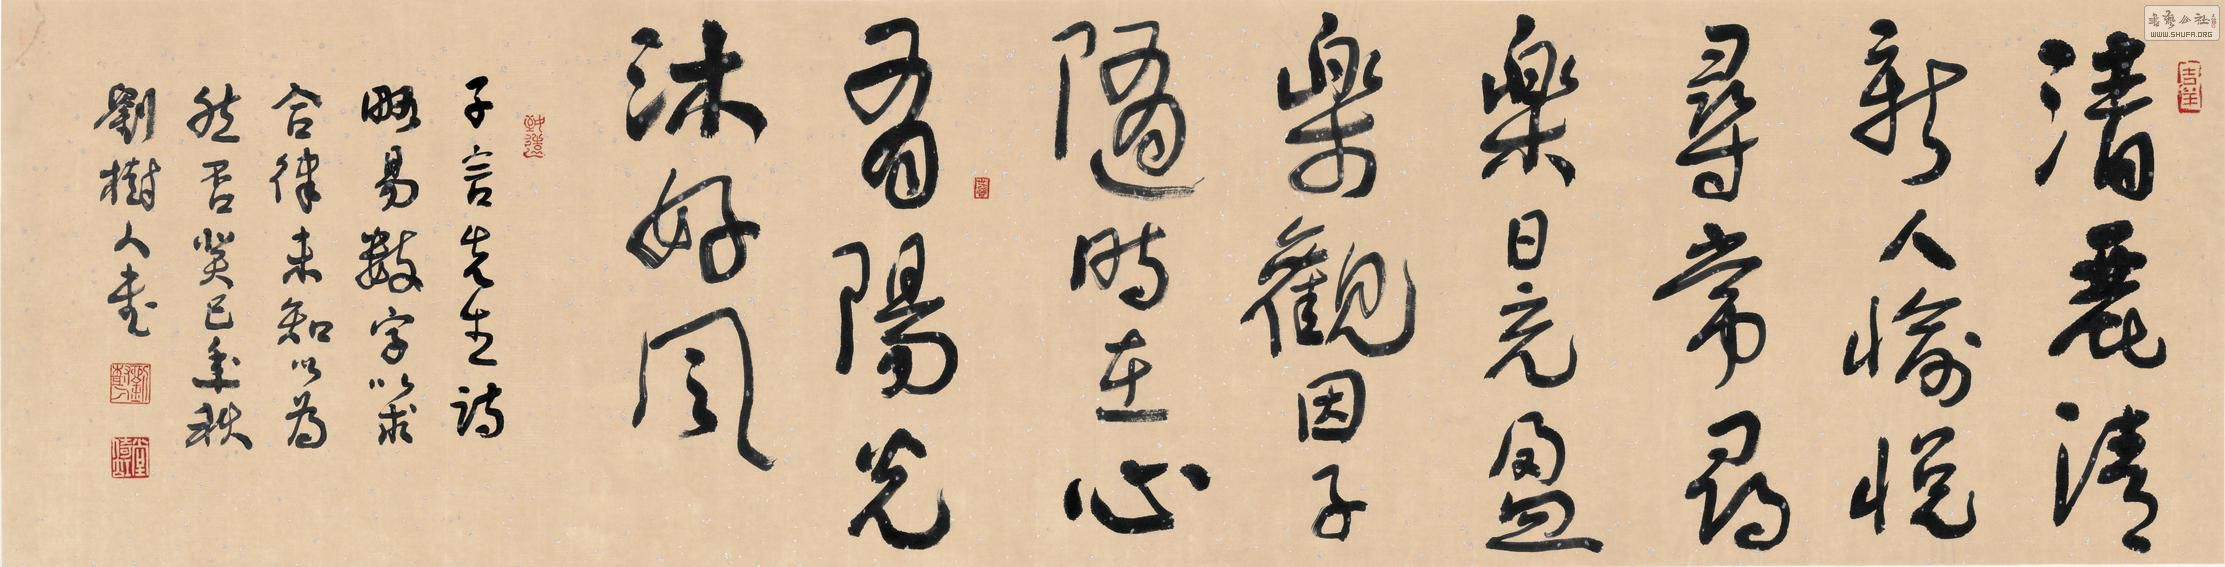 清麗清
新人愉悅
尋常尋
樂日充盈
樂觀因子
隨時在心
有陽光
沐好風
子言先生詩
略易數字以求
合律未知以為
然否癸巳年秋
劉樹人書
書藝公社
WWW.SHUFA.ORG